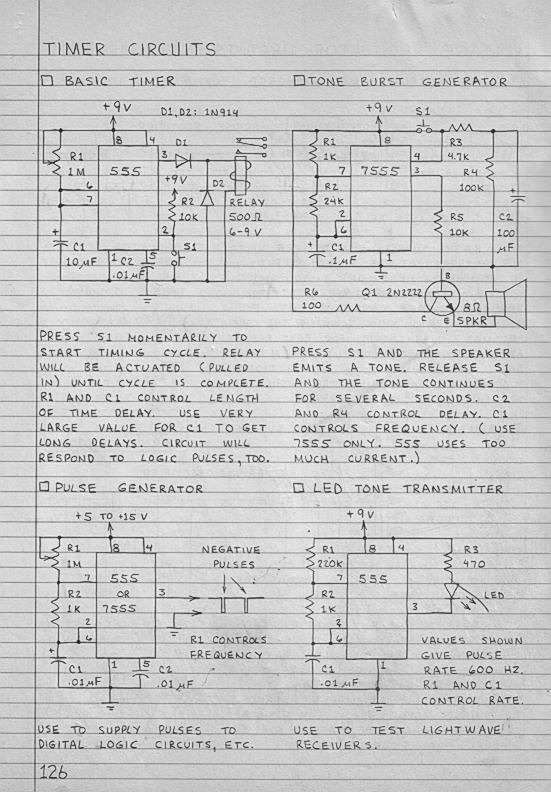 TIMER CIRCUITS
☐ BASIC TIMER
+9V
D1,D2: 1N914
8 4
R1
1M
555
3 D1
+9V
6
7
R2
10K
D2
RELAY
500Ω
6-9 V
2
S1
+
C1
10 µF
1 C2 5
.01µF
PRESS S1 MOMENTARILY TO
START TIMING CYCLE. RELAY
WILL BE ACTUATED (PULLED
IN) UNTIL CYCLE IS COMPLETE.
R1 AND C1 CONTROL LENGTH
OF TIME DELAY. USE VERY
LARGE VALUE FOR C1 TO GET
LONG DELAYS. CIRCUIT WILL
RESPOND TO LOGIC PULSES, TOO.
☐ TONE BURST GENERATOR
+9V S1
8
R1
1K
7
7555
4
3
R3
4.7K
R4
100K
R2
24K
2
6
R5
10K
C2
100
µF
+
+
C1
.1µF
1
R6
100
Q1 2N2222
B
C E
8Ω
SPKR
PRESS S1 AND THE SPEAKER
EMITS A TONE. RELEASE S1
AND THE TONE CONTINUES
FOR SEVERAL SECONDS. C2
AND R4 CONTROL DELAY. C1
CONTROLS FREQUENCY. (USE
7555 ONLY. 555 USES TOO
MUCH CURRENT.)
☐ PULSE GENERATOR
+5 TO +15 V
8 4
R1
1M
7
555
OR
7555
3
R2
1K
2
6
NEGATIVE
PULSES
R1 CONTROLS
FREQUENCY
+
C1
.01µF
1 5
C2
.01µF
USE TO SUPPLY PULSES TO
DIGITAL LOGIC CIRCUITS, ETC.
☐ LED TONE TRANSMITTER
+9V
8 4
R1
220K
7
555
R3
470
LED
R2
1K
3
2
6
C1
.01µF
1
VALUES SHOWN
GIVE PULSE
RATE 600 HZ.
R1 AND C1
CONTROL RATE.
USE TO TEST LIGHTWAVE
RECEIVERS.
126